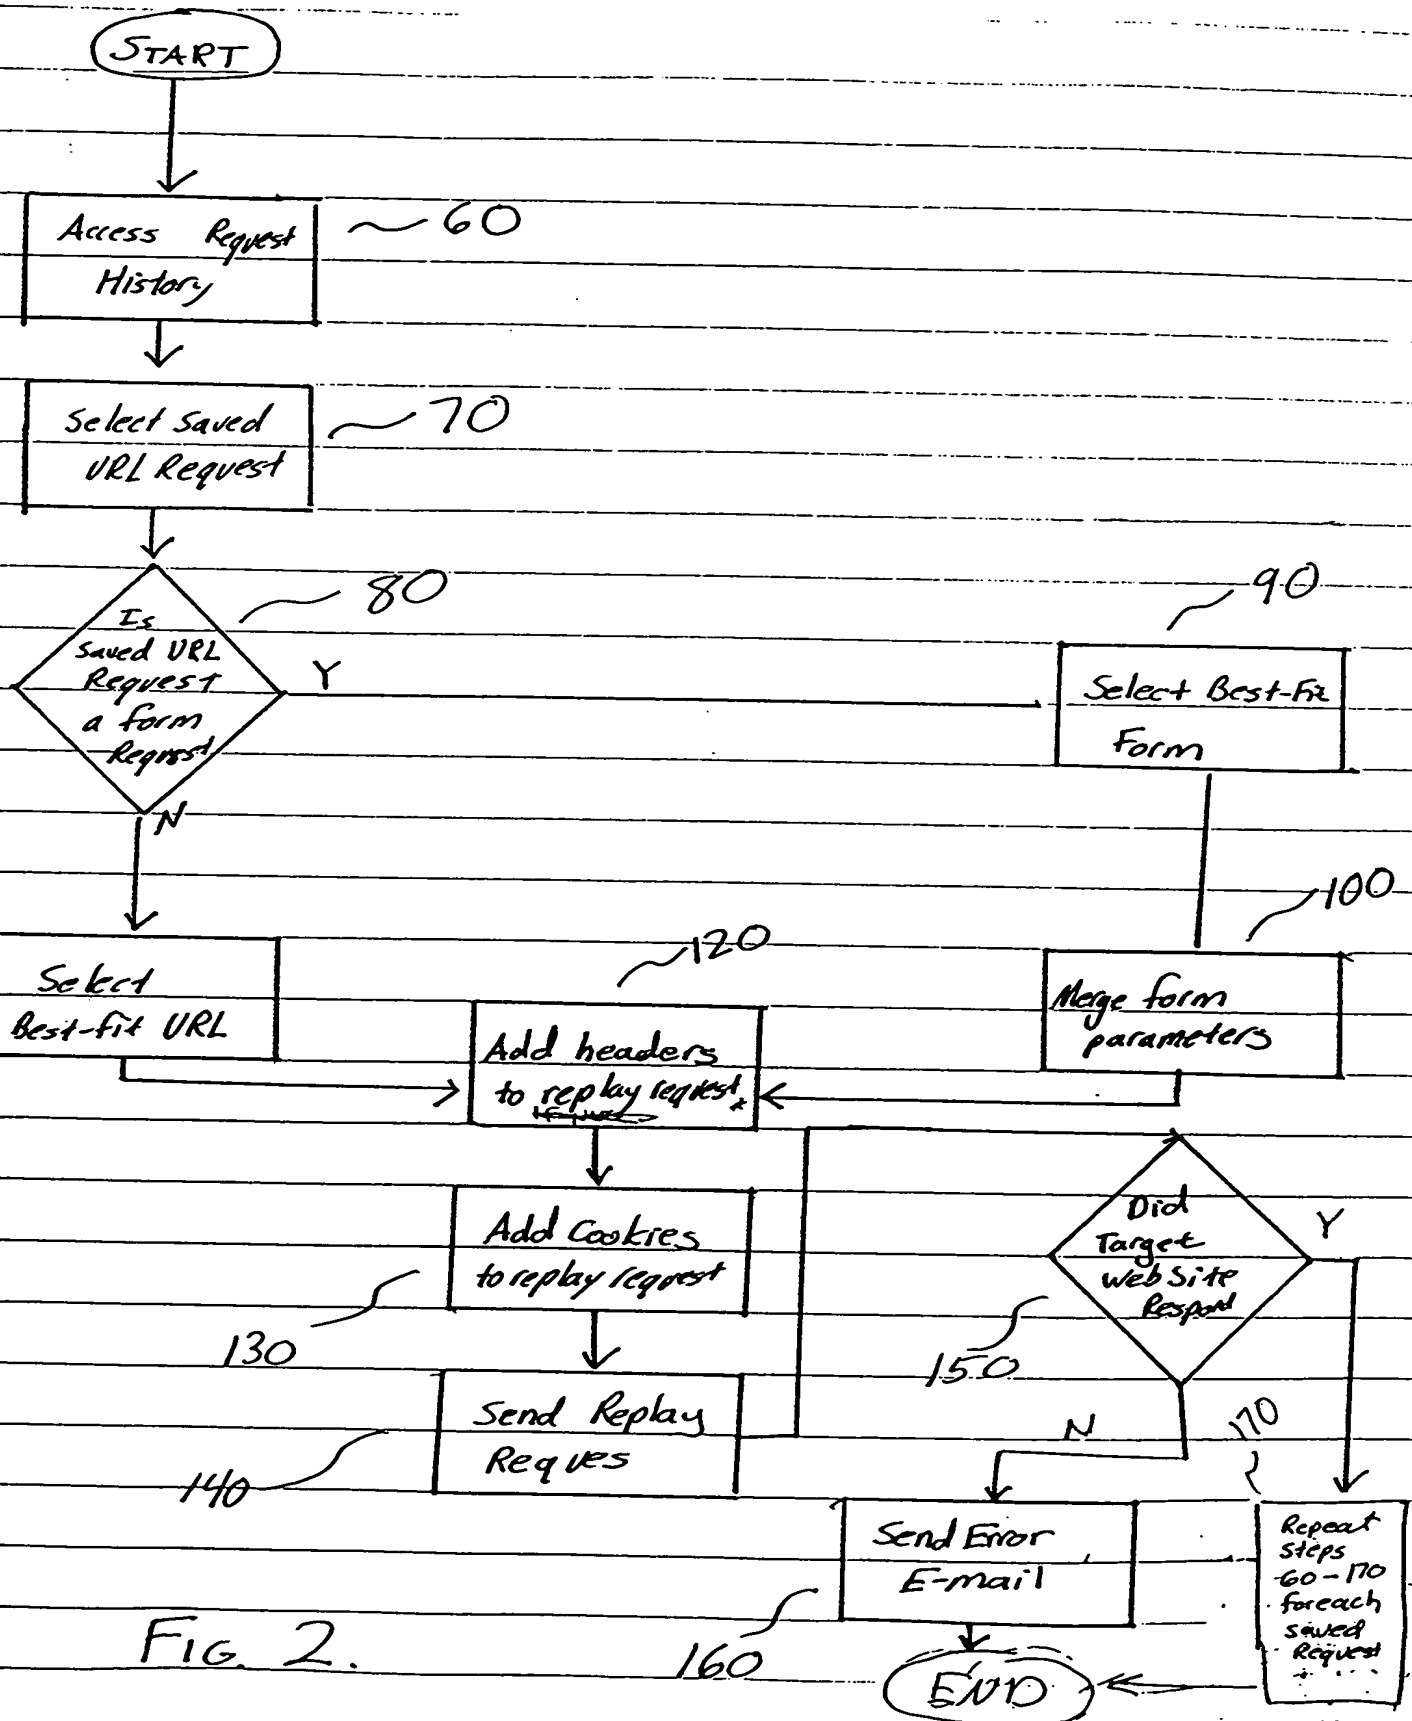 START
Access Request
History
60
Select Saved
URL Request
70
Is
Saved URL
Request
a form
Request
80
Y
N
90
Select Best-Fit
Form
100
Merge form
parameters
Select
Best-fit URL
120
Add headers
to replay request
Add Cookies
to replay request
130
Send Replay
Reques
140
Did
Target
Web Site
Respond
Y
150
N
170
Send Error
E-mail
160
Repeat
steps
60-170
foreach
saved
Request
END
FIG. 2.